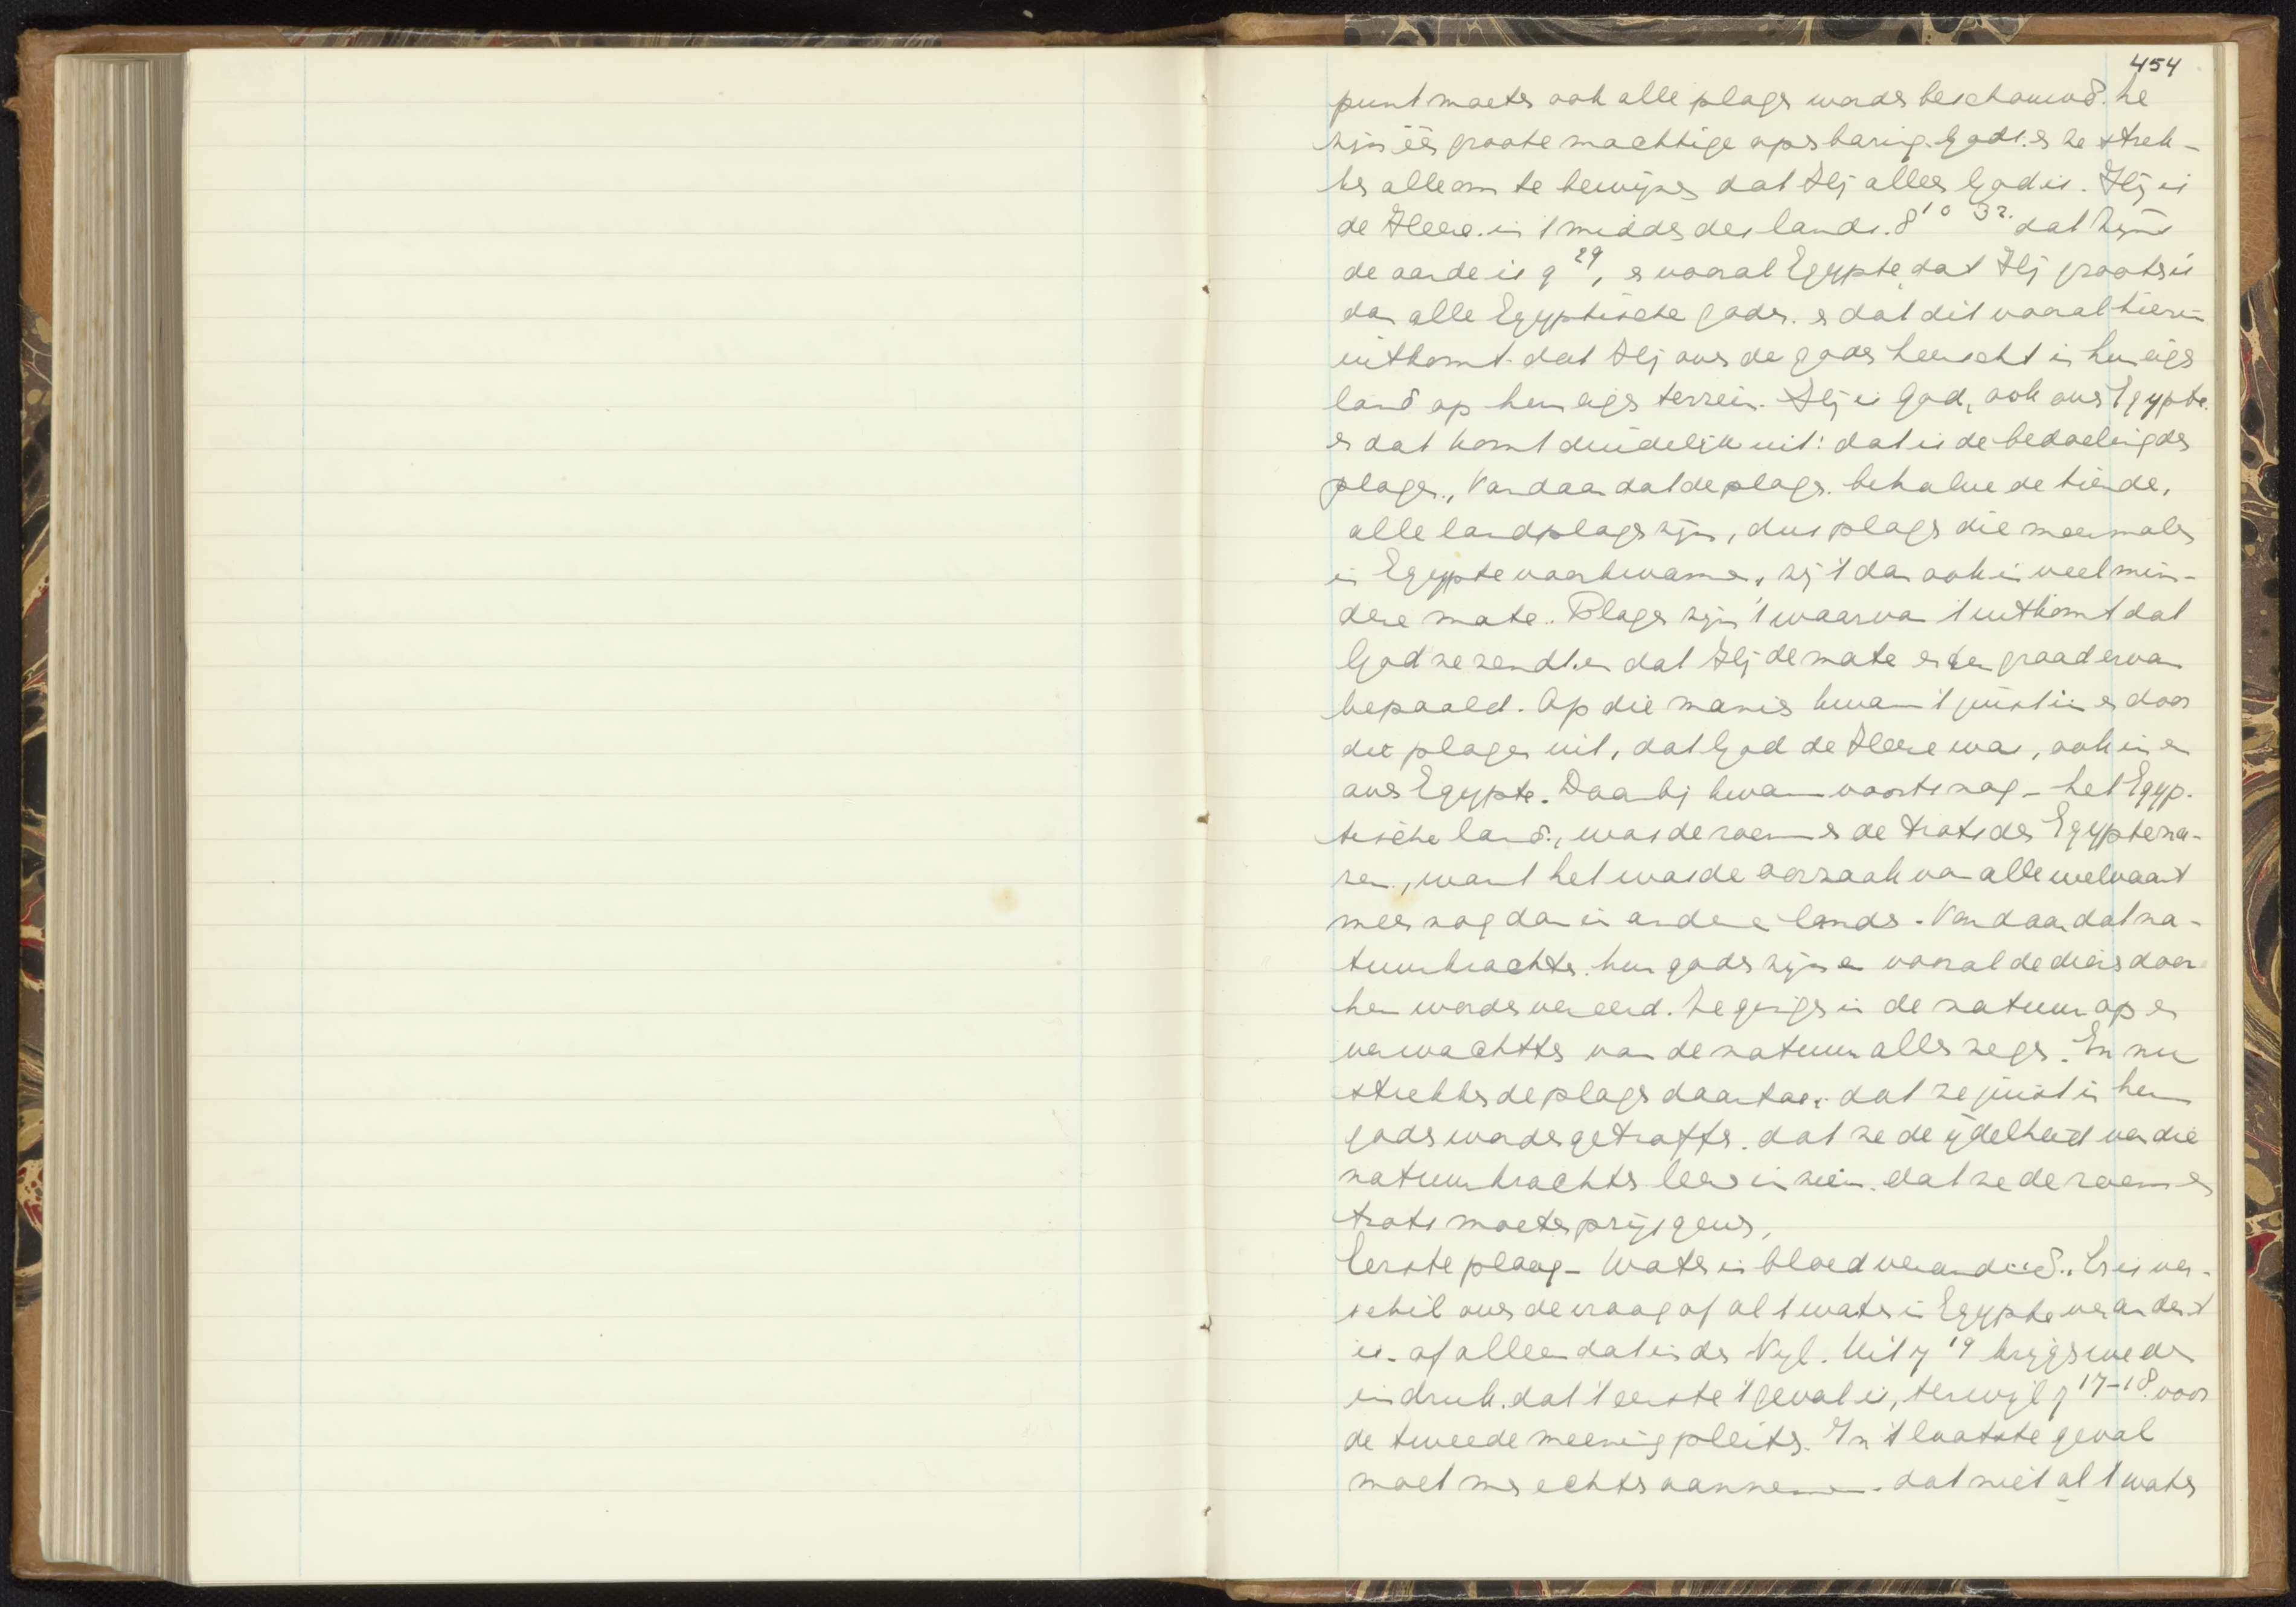 454
punt moeten ook alle plagen worden beschouwd. Ze
zijn één groote machtige openbaring Gods. en ze strek-
ken alle om te bewijzen dat Hij alles God is. Hij is
de Heere in 't midden des lands. 8 10 32. dat Zijns
de aarde is 9 29, en vooral Egypte, dat Hij grooter is
dan alle Egyptische goden. en dat dit vooral hierin
uitkomt dat Hij over de goden heerscht in hun eigen
land op hun eigen terrein. Hij is God, ook over Egypte.
en dat komt duidelijk uit: dat is de bedoeling der
plagen., Vandaar dat de plagen. behalve de tiende,
alle landplagen zijn, dus plagen die meermalen
in Egypte voorkwamen, zij 't dan ook in veel min-
dere mate. Plagen zijn 't waarvan 't uitkomt dat
God ze zendt. en dat Hij de mate en den graad ervan
bepaald. Op die manier kwam 't juist in en door
die plagen uit, dat God de Heere was, ook in en
over Egypte. Daarbij kwam voorts nog - het Egyp-
tische land., was de roem en de trots der Egyptena-
ren., want het was de oorzaak van alle welvaart
meer nog dan in andere landen. Vandaar dat na-
tuurkrachten hun goden zijn en vooral de dieren door
hen worden vereerd. Ze gingen in de natuur op en
verwachtten van de natuur allen zegen. En nu
strekken de plagen daartoe: dat ze juist in hun
goden worden getroffen. dat ze de ijdelheid van die
natuurkrachten leeren inzien. dat ze de roem en
trots moeten prijsgeven,
Eerste plaag - Water in bloed veranderd.. Er is ver-
schil over de vraag of al 't water in Egypte veranderd
is - of alleen dat in den Nijl. Uit 7 19 krijgen we den
indruk. dat 't eerste 't geval is, terwijl 7 17-18 voor
de tweede meening pleiten. In 't laatste geval
moet men echter aannemen. dat niet al 't water